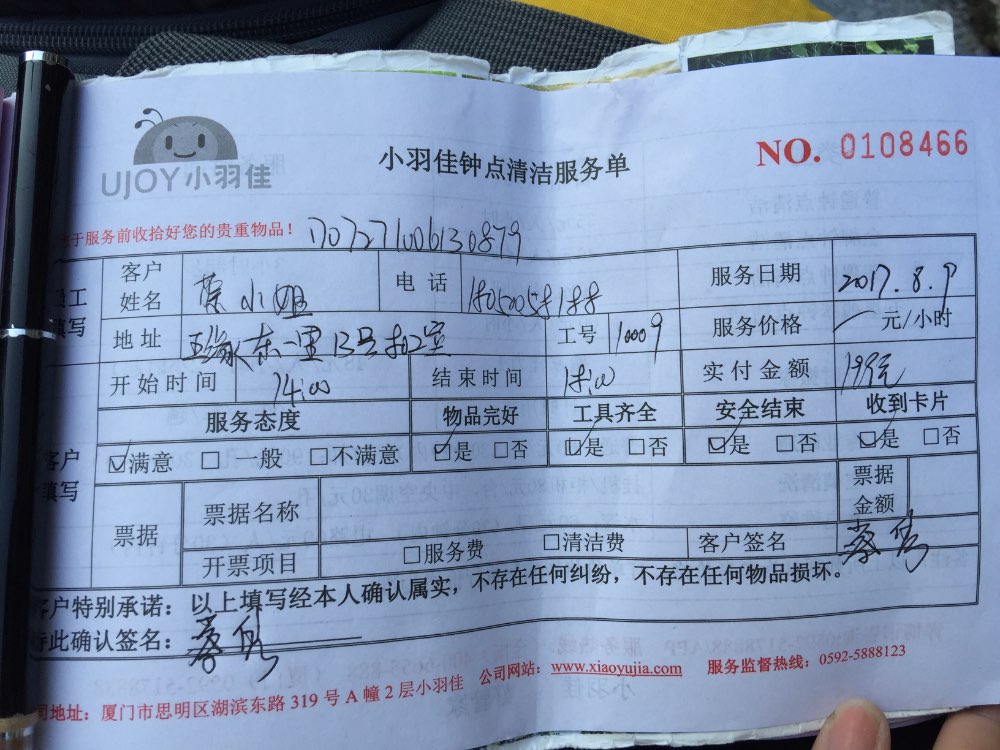 UJOY小羽佳
小羽佳钟点清洁服务单
NO. 0108466
于服务前收拾好您的贵重物品！ D07271006130879
工填写
客户姓名 蔡小姐 电话 服务日期 2017.8.9
地址 五缘水东一里13号 工号 10009 服务价格 元/小时
开始时间 14:00 结束时间 18:00 实付金额
服务态度 物品完好 工具齐全 安全结束 收到卡片
客户填写
☑满意 □一般 □不满意 ☑是 □否 ☑是 □否 ☑是 □否 ☑是 □否
票据 票据名称 票据金额
开票项目 □服务费 □清洁费 客户签名 蔡
客户特别承诺：以上填写经本人确认属实，不存在任何纠纷，不存在任何物品损坏。
特此确认签名：蔡
司地址：厦门市思明区湖滨东路 319 号 A 幢 2 层小羽佳 公司网站：www.xiaoyujia.com 服务监督热线：0592-5888123